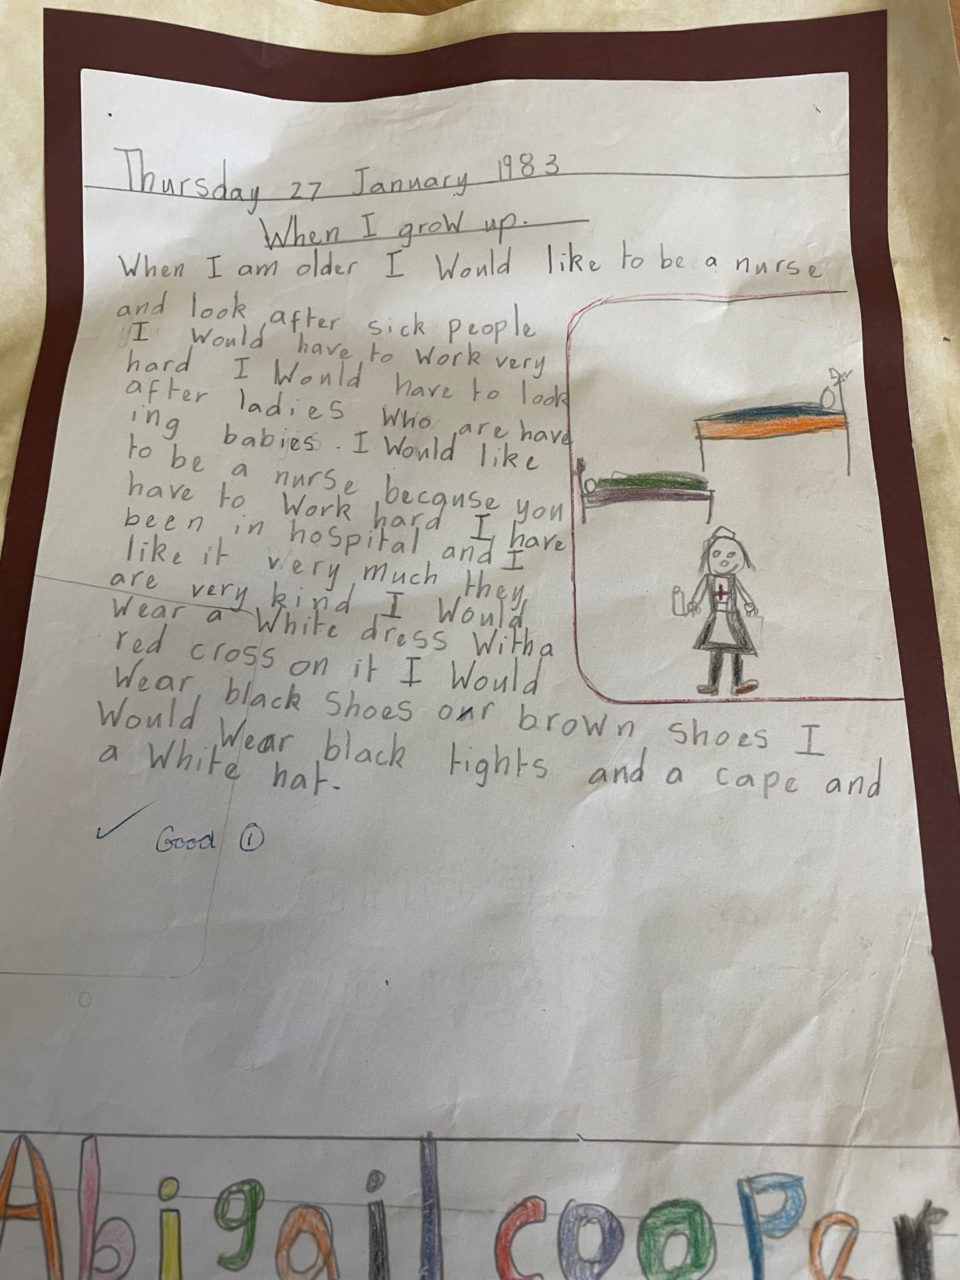 Thursday 27 January 1983
When I grow up.
When I am older I Would like to be a nurse
and look after sick people
I Would have to Work very
hard I Would have to look
after ladies Who are have
ing babies. I Would like
to be a nurse because you
have to Work hard I have
been in hospital and I
like it very much they
are very kind I Would
Wear a White dress With a
red cross on it I Would
Wear black Shoes or brown shoes I
Would Wear black tights and a cape and
a White hat.
✓ Good ①
Abigail cooper